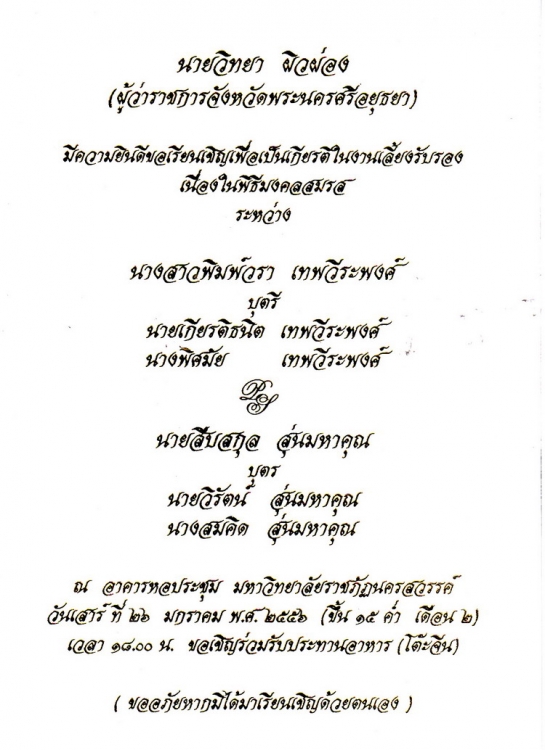 นายวิทยา ผิวผ่อง
(ผู้ว่าราชการจังหวัดพระนครศรีอยุธยา)
มีความยินดีขอเรียนเชิญเพื่อเป็นเกียรติในงานเลี้ยงรับรอง
เนื่องในพิธีมงคลสมรส
ระหว่าง
นางสาวพิมพ์วรา เทพวีระพงศ์
บุตรี
นายเกียรติธนิต เทพวีระพงศ์
นางพิศมัย เทพวีระพงศ์
P S
นายสืบสกุล สุ่นมหาคุณ
บุตร
นายวิรัตน์ สุ่นมหาคุณ
นางสมคิด สุ่นมหาคุณ
ณ อาคารหอประชุม มหาวิทยาลัยราชภัฏนครสวรรค์
วันเสาร์ ที่ ๒๖ มกราคม พ.ศ. ๒๕๕๖ (ขึ้น ๑๕ ค่ำ เดือน ๒)
เวลา ๑๘.๐๐ น. ขอเชิญร่วมรับประทานอาหาร (โต๊ะจีน)
( ขออภัยหากมิได้มาเรียนเชิญด้วยตนเอง )